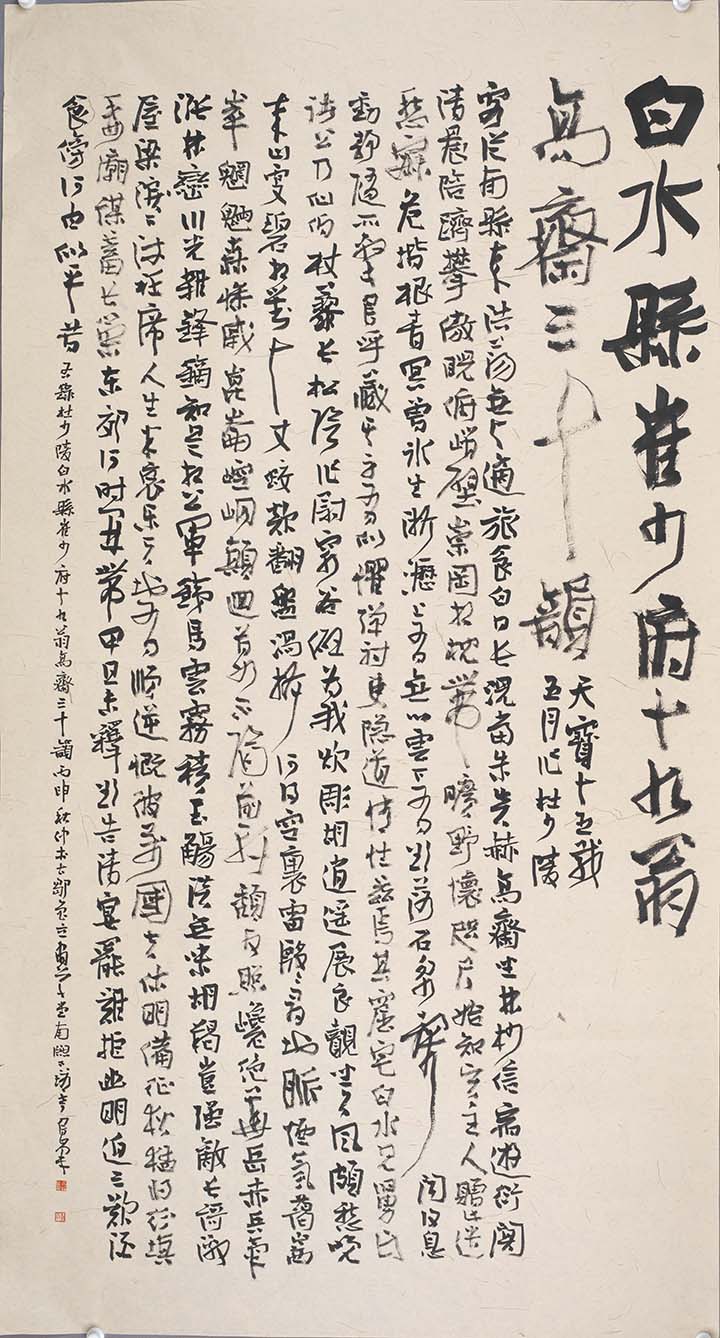 白水縣崔少府十九翁
高齋三十韻
天寶十五載
五月作杜少陵
客從南縣來浩蕩無與適旅食白日長況當朱炎赫高齋坐林杪信宿遊衍闃
清晨陪躋攀傲睨俯峭壁崇岡相枕帶曠野懷咫尺始知賢主人贈此遣
愁寂危階根青冥曾冰生淅瀝上有無心雲下有欲落石泉聲聞復息
動靜隨所擊鳥呼藏其身有似懼彈射吏隱道情性茲焉其窟宅白水見舅氏
諸公乃仙伯杖藜長松陰作尉窮谷僻為我炊彫胡逍遙展良覿坐久風頗愁晚
來山更碧相對十丈蛟欻翻盤渦坼何得空裏雷殷殷尋地脈煙氛藹崷
崒魍魎森慘戚崑崙崆峒顛回首如不隔前軒頹反照巉絕華岳赤兵氣
漲林巒川光雜鋒鏑知是相公軍鐵馬雲霧積玉觴淡無味胡羯豈強敵長歌激
屋梁淚下流衽席人生半哀樂天地有順逆慨彼萬國夫休明備征狄猛將紛填
委廟謀蓄長策東郊何時開帶甲且未釋欲告清宴罷難拒幽明迫三歎酒
食傍何由似平昔
右錄杜少陵白水縣崔少府十九翁高齋三十韻丙申秋仲